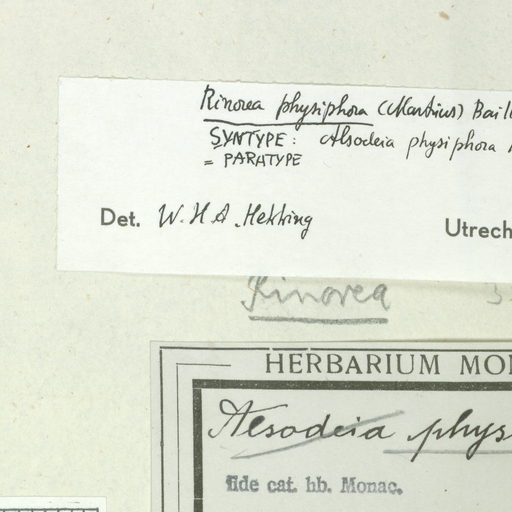 Rinorea physiphora (Martius) Baill
SYNTYPE: Alsodeia physiphora
= PARATYPE
Det. W.H.A. Hekking
Utrech
Rinorea
HERBARIUM MO
Alsodeia phys
fide cat. hb. Monac.